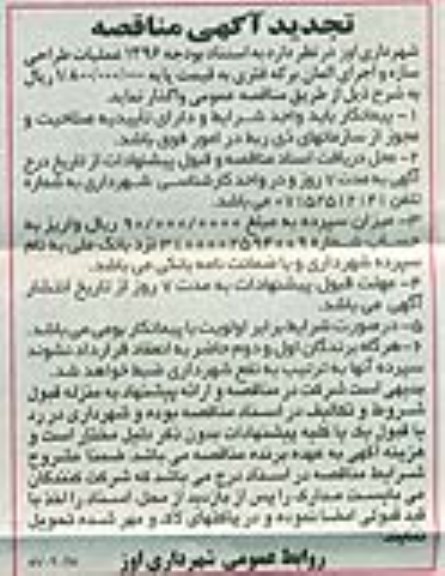 تجدید آگهی مناقصه
شهرداری اوز در نظر دارد به استناد بودجه ۱۳۹۶ عملیات طراحی
سازه و اجرای المان برکه فنری به قیمت پایه ۷/۸۰۰/۰۰۰/۰۰۰ ریال
به شرح ذیل از طریق مناقصه عمومی واگذار نماید.
۱- پیمانکار باید واجد شرایط و دارای تأییدیه صلاحیت و
مجوز از سازمانهای ذی ربط در امور فوق باشد.
۲- محل دریافت اسناد مناقصه و قبول پیشنهادات از تاریخ درج
آگهی به مدت ۷ روز و در واحد کارشناسی شهرداری به شماره
تلفن می باشد.
۳- میزان سپرده به مبلغ ریال واریز به
حساب شماره نزد بانک ملی به نام
سپرده شهرداری و یا ضمانت نامه بانکی می باشد.
۴- مهلت قبول پیشنهادات به مدت ۷ روز از تاریخ انتشار
آگهی می باشد.
۵- در صورت شرایط برابر اولویت با پیمانکار بومی می باشد.
۶- هرگاه برندگان اول و دوم حاضر به انعقاد قرارداد نشوند
سپرده آنها به ترتیب به نفع شهرداری ضبط خواهد شد.
بدیهی است شرکت در مناقصه و ارائه پیشنهاد به منزله قبول
شروط و تکالیف در اسناد مناقصه بوده و شهرداری در رد
یا قبول یک یا کلیه پیشنهادات بدون ذکر دلیل مختار است و
هزینه آگهی به عهده برنده مناقصه می باشد ضمنا مشروح
شرایط مناقصه در اسناد درج می باشد که شرکت کنندگان
می بایست مدارک را پس از بازدید از محل اسناد را اخذ با
قید قبولی امضا نموده و در پاکتهای لاک و مهر شده تحویل
نمایند.
روابط عمومی شهرداری اوز